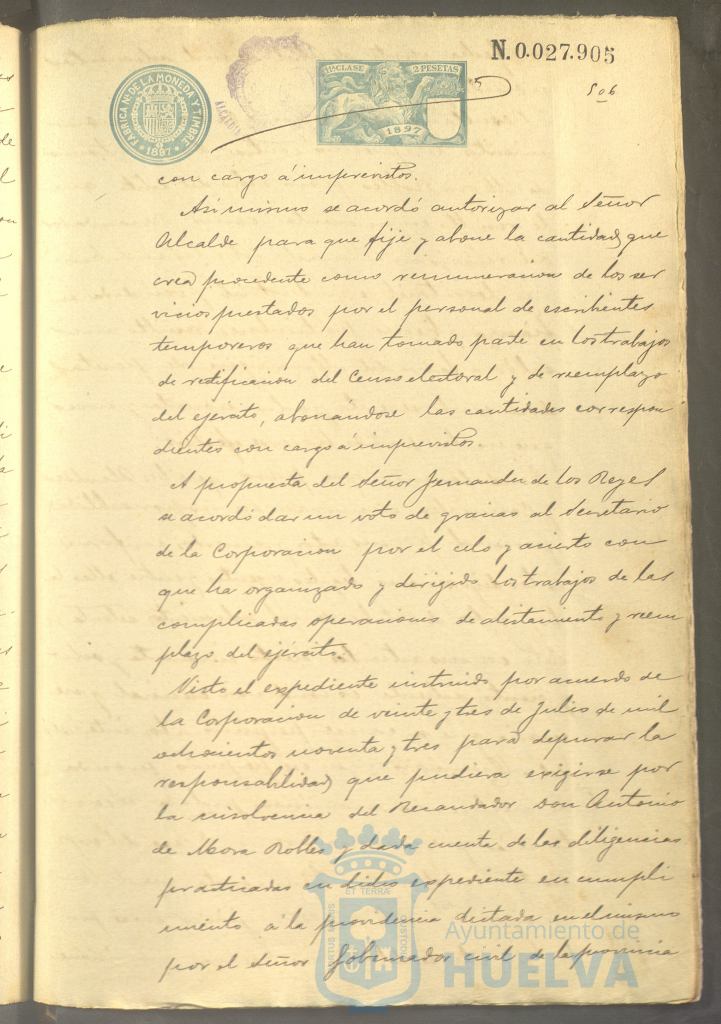 N. 0.027.905
FABRICA NL DE LA MONEDA Y TIMBRE
* 1897 *
11ª CLASE 2 PESETAS
1897
506
con cargo á imprevistos.
Asimismo se acordó autorizar al Señor
Alcalde para que fije y abone la cantidad que
crea procedente como remuneracion de los ser
vicios prestados por el personal de escribientes
temporeros que han tomado parte en los trabajos
de rectificacion del Censo electoral y de reemplazo
del ejército, abonándose las cantidades correspon
dientes con cargo á imprevistos.
A propuesta del Señor Fernandez de los Reyes
se acordó dar un voto de gracias al Secretario
de la Corporacion por el celo y acierto con
que ha organizado y dirigido los trabajos de las
complicadas operaciones de alistamiento y reem
plazo del ejército.
Visto el expediente instruido por acuerdo de
la Corporacion de veinte y tres de Julio de mil
ochocientos noventa y tres para depurar la
responsabilidad que pudiera exigirse por
la insolvencia del Recaudador Don Antonio
de Mora Robles y dada cuenta de las diligencias
practicadas en dicho expediente en cumpli
miento á la providencia dictada en el mismo
por el Señor Gobernador civil de la provincia
ET TERRAE
Ayuntamiento de
HUELVA